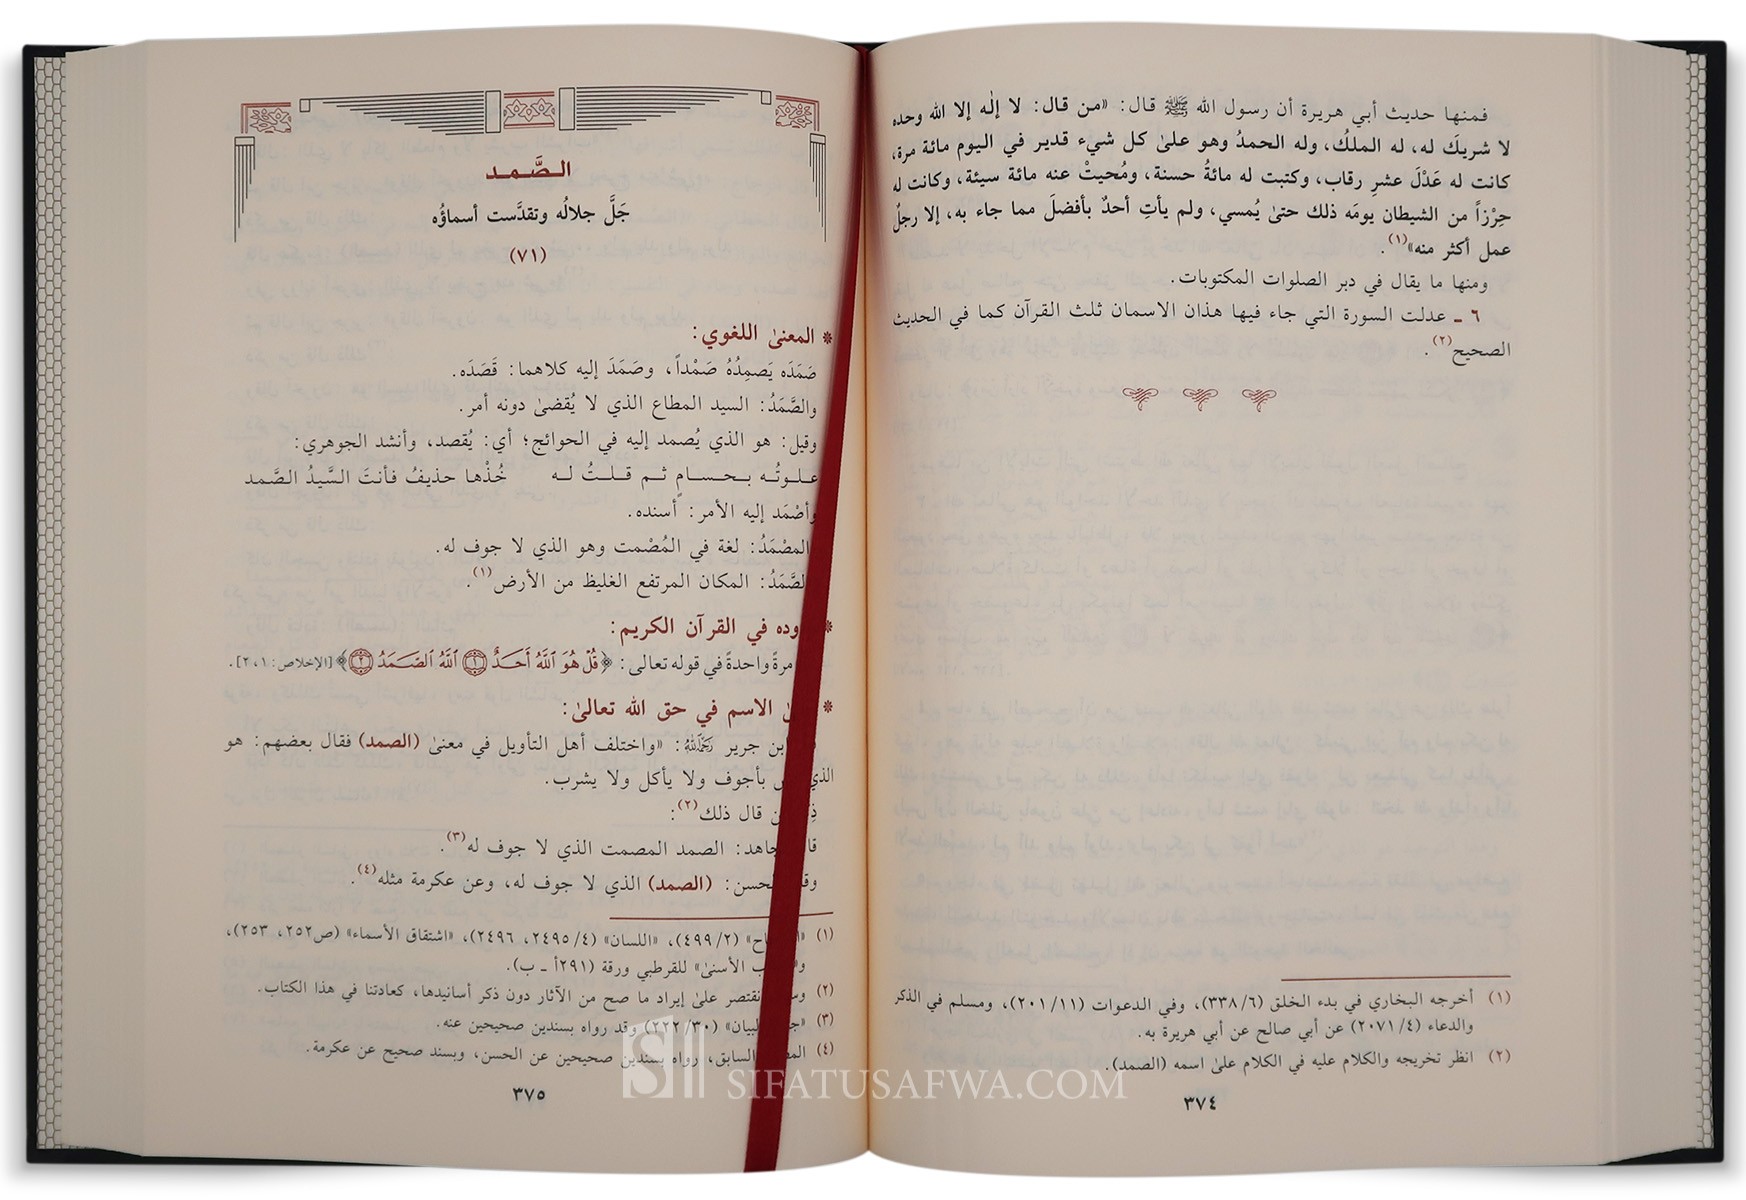 فمنها حديث أبي هريرة أن رسول الله ﷺ قال: «من قال: لا إلٰه إلا الله وحده
لا شريكَ له، له الملكُ، وله الحمدُ وهو علىٰ كل شيء قدير في اليوم مائة مرة،
كانت له عَدْلَ عشرِ رقاب، وكتبت له مائةُ حسنة، ومُحيتْ عنه مائة سيئة، وكانت له
حِرْزاً من الشيطان يومَه ذلك حتىٰ يُمسي، ولم يأتِ أحدٌ بأفضلَ مما جاء به، إلا رجلٌ
عمل أكثر منه»(١).
ومنها ما يقال في دبر الصلوات المكتوبات.
٦ ـ عدلت السورة التي جاء فيها هذان الاسمان ثلث القرآن كما في الحديث
الصحيح(٢).
(١) أخرجه البخاري في بدء الخلق (٣٣٨/٦)، وفي الدعوات (٢٠١/١١)، ومسلم في الذكر
والدعاء (٢٠٧١/٤) عن أبي صالح عن أبي هريرة به.
(٢) انظر تخريجه والكلام عليه في الكلام علىٰ اسمه (الصمد).
٣٧٤
الصَّمد
جَلَّ جلالُه وتقدَّست أسماؤُه
(٧١)
* المعنىٰ اللغوي:
صَمَدَه يَصمِدُهُ صَمْداً، وصَمَدَ إليه كلاهما: قَصَدَه.
والصَّمَدُ: السيد المطاع الذي لا يُقضىٰ دونه أمر.
وقيل: هو الذي يُصمد إليه في الحوائج؛ أي: يُقصد، وأنشد الجوهري:
علوتُه بحسامٍ ثم قلتُ له خُذْها حذيفُ فأنتَ السَّيدُ الصَّمد
وأصْمَد إليه الأمر: أسنده.
المصْمَدُ: لغة في المُصْمت وهو الذي لا جوف له.
الصَّمَدُ: المكان المرتفع الغليظ من الأرض(١).
* في القرآن الكريم:
مرةً واحدةً في قوله تعالى: ﴿قُلْ هُوَ ٱللَّهُ أَحَدٌ ۝١ ٱللَّهُ ٱلصَّمَدُ ۝٢﴾ [الإخلاص: ١، ٢].
* الاسم في حق الله تعالىٰ:
ابن جرير رحمه الله: «واختلف أهل التأويل في معنىٰ (الصمد) فقال بعضهم: هو
الذي بأجوف ولا يأكل ولا يشرب.
قال ذلك(٢):
مجاهد: الصمد المصمت الذي لا جوف له(٣).
الحسن: (الصمد) الذي لا جوف له، وعن عكرمة مثله(٤).
(١) (٤٩٩/٢)، «اللسان» (٢٤٩٥/٤، ٢٤٩٦)، «اشتقاق الأسماء» (ص٢٥٢، ٢٥٣)،
الأسنىٰ» للقرطبي ورقة (٢٩١أ ـ ب).
(٢) نقتصر علىٰ إيراد ما صح من الآثار دون ذكر أسانيدها، كعادتنا في هذا الكتاب.
(٣) البيان» (٢٢٢/٣٠) وقد رواه بسندين صحيحين عنه.
(٤) السابق، رواه بسندين صحيحين عن الحسن، وبسند صحيح عن عكرمة.
٣٧٥
SIFATUSAFWA.COM